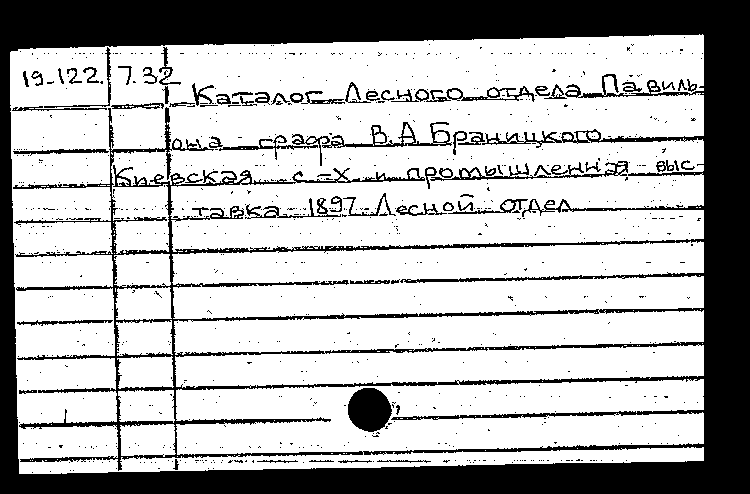 19-122. 7.32 Каталог Лесного отдела Павиль-
она графа В.А Браницкого
Киевская с-х и промышленная выс-
тавка 1897 Лесной отдел